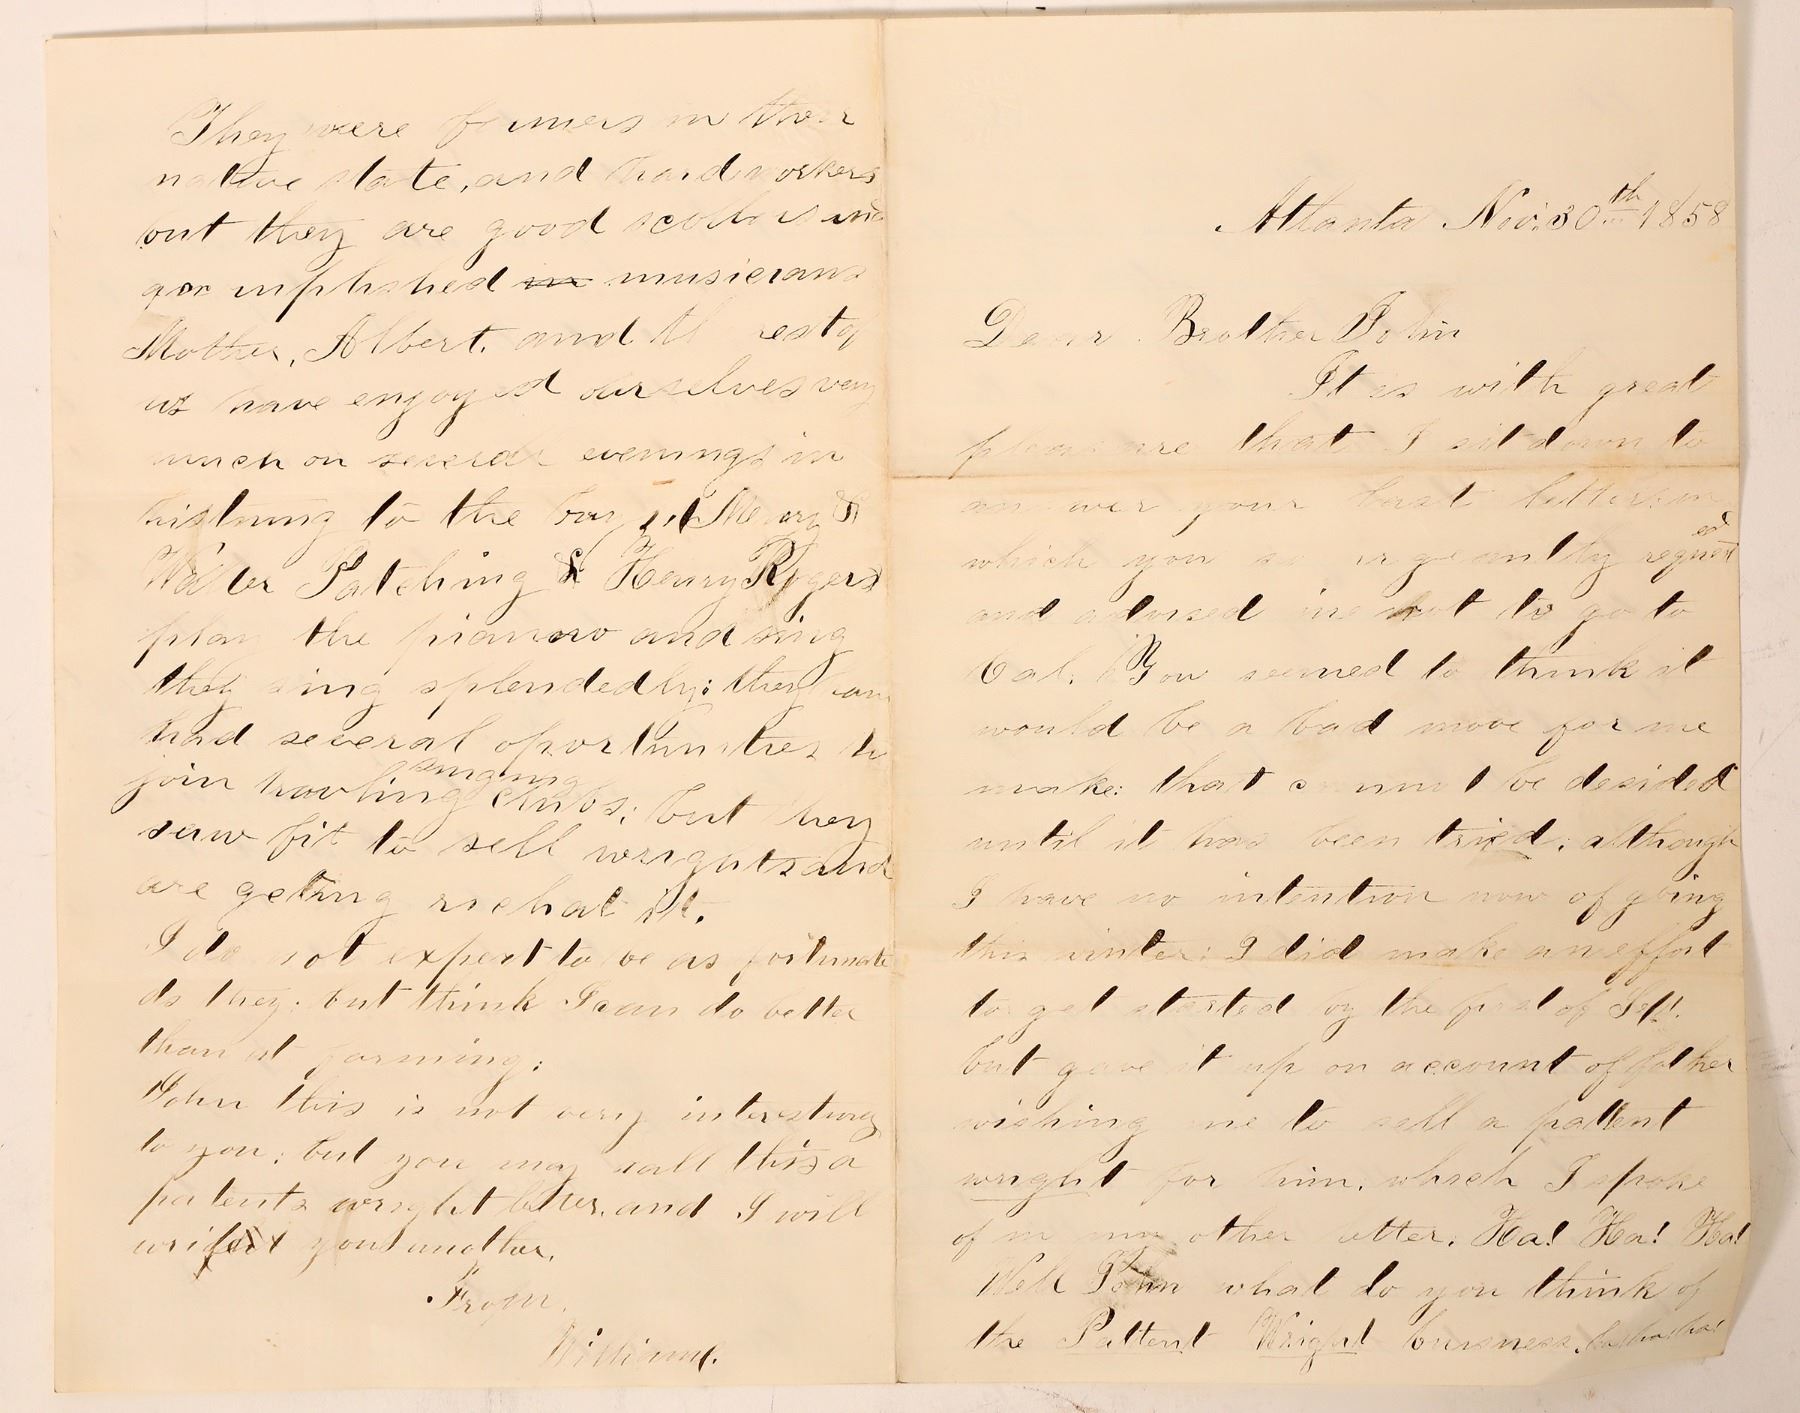 Atlanta Nov. 30th 1858
Dear Brother John
It is with great
pleasure that I sit down to
answer your last letter: in
which you so urgeantly requested
and advised me not to go to
Cal. You seemed to think it
would be a bad move for me
make: that cannot be desided
until it has been tried; although
I have no intention now of going
this winter: I did make an effort
to get started by the first of Sept.
but gave it up on account of father
wishing me to sell a pattent
wright for him, which I spoke
of in my other letter. Ha! Ha! Ha!
Well John what do you think of
the Pattent Wright buisness, ha ha ha!
They were farmers in their
native state, and hard workers
but they are good scollors and
acomplished in musicians
Mother, Albert, and the rest of
us have enjoyed ourselves very
much on several evenings in
listning to the boys
Walter Patching & Henry Rogers
play the pianno and sing
they sing splendedly; they have
had several oportunities to
join singing clubs; but they
saw fit to sell wrights and
are geting rich at it.
I do not expect to be as fortunate
as they; but think I can do better
than at farming;
John this is not very interesting
to you; but you may call this a
patents wright letter, and I will
you another.
From,
William.